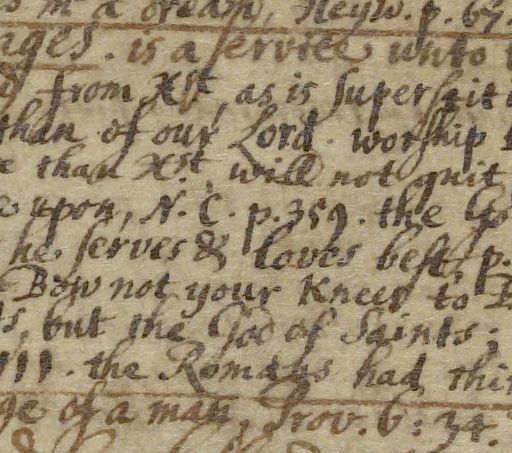 in a dream, Heyw. p. 67.
ages. is a service unto
from Xst, as is superstit
than of our Lord. worship
than Xst. will not quit
upon, N. C. p. 359. the
he serves & loves best, p.
Bow not your Knees to B
ts, but the God of Saints;
111. the Romans had thir
ge of a man, Prov. 6: 34.